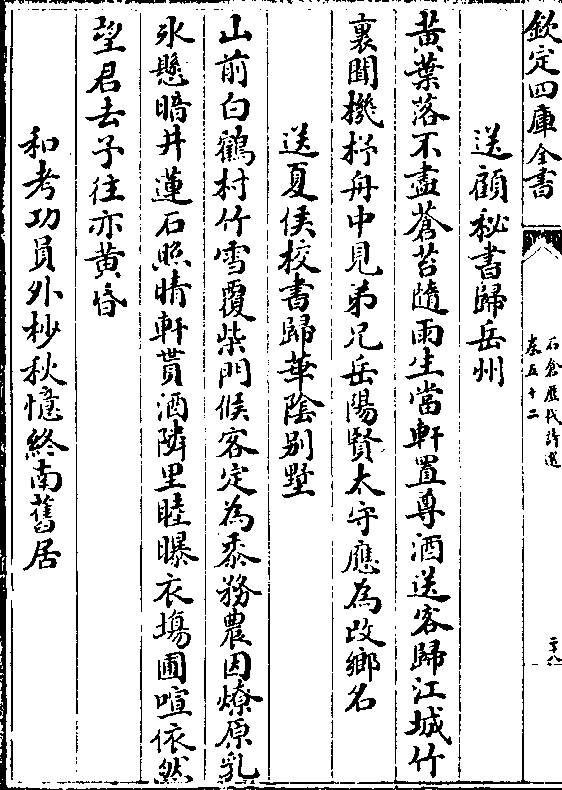 欽定四庫全書
石倉歷代詩選
卷五十二
二十八
送顧秘書歸岳州
黃葉落不盡蒼苔隨雨生當軒置尊酒送客歸江城竹
裏聞機杼舟中見弟兄岳陽賢太守應為改鄉名
送夏侯校書歸華陰别墅
山前白鶴村竹雪覆柴門候客定為黍務農因燎原乳
氷懸暗井蓮石照晴軒貰酒隣里睦曝衣塲圃喧依然
望君去子往亦黄昏
和考功員外杪秋憶終南舊居